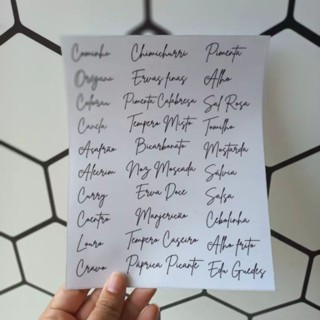 Cominho Chimichurri Pimenta
Orégano Ervas finas Alho
Colorau Pimenta Calabresa Sal Rosa
Canela Tempero Misto Tomilho
Açafrão Bicarbonato Mostarda
Alecrim Noz Moscada Salvia
Curry Erva Doce Salsa
Coentro Manjericão Cebolinha
Louro Tempero Caseiro Alho frito
Cravo Páprica Picante Edu Guedes